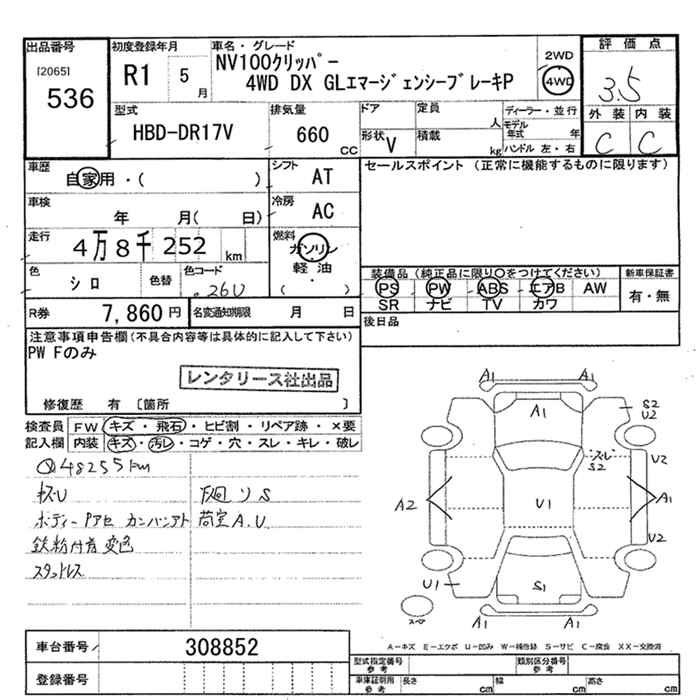 出品番号
[2065]
536
初度登録年月
R1 5月
車名・グレード
NV100クリッパー
4WD DX GLエマージェンシーブレーキP
2WD
4WD
評価点
3.5
外装 内装
C C
型式
HBD-DR17V
排気量
660 CC
ドア
形状 V
定員 人
積載 kg
ディーラー・並行
モデル年式 年
ハンドル 左・右
車歴
自家用・( )
シフト AT
車検
年 月( 日)
冷房 AC
走行
4万8千252 km
燃料
ガソリン
軽油
( )
色
シロ
色替
色コード
26U
R券 7,860円
名変通知期限 月 日
セールスポイント (正常に機能するものに限ります)
装備品 (純正品に限り○をつけてください)
PS PW ABS エアB AW
SR ナビ TV カワ
新車保証書
有・無
後日品
注意事項申告欄(不具合内容等は具体的に記入して下さい)
PW Fのみ
レンタリース社出品
修復歴 有 [箇所 ]
検査員記入欄
FW キズ・飛石・ヒビ割・リペア跡・×要
内装 キズ・汚レ・コゲ・穴・スレ・キレ・破レ
48255km
下廻りS
荷室A.U
鉄粉付着 変色
スタッドレス
A1 A1
A1
S2
U2
スレ
S2
U2
A2
U1
A1
U2
U1
S1
スペア
A1 A1
A−キズ E−エクボ U−凹み W−補修跡 S−サビ C−腐食 XX−交換済
車台番号 308852
登録番号
型式指定番号 参考
類別区分番号 参考
車庫証明用 参考
長さ cm
幅 cm
高さ cm